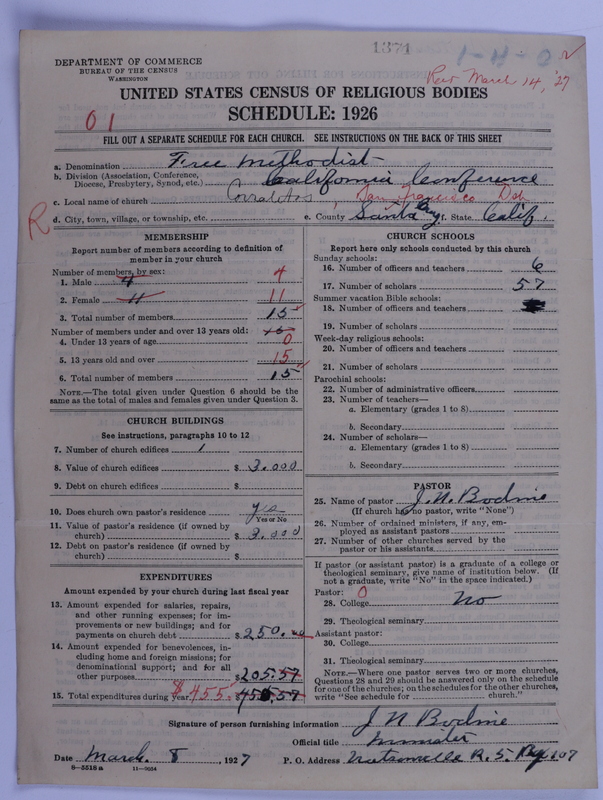 1371
1-4-0
DEPARTMENT OF COMMERCE
BUREAU OF THE CENSUS
WASHINGTON
Rev March 14, '27
UNITED STATES CENSUS OF RELIGIOUS BODIES
SCHEDULE: 1926
01
FILL OUT A SEPARATE SCHEDULE FOR EACH CHURCH. SEE INSTRUCTIONS ON THE BACK OF THIS SHEET
a. Denomination Free Methodist
b. Division (Association, Conference, Diocese, Presbytery, Synod, etc.) California Conference
c. Local name of church Corralitos, San Francisco Dist
R
d. City, town, village, or township, etc. e. County Santa Cruz f. State Calif.
MEMBERSHIP
Report number of members according to definition of member in your church
Number of members, by sex:
1. Male 4 4
2. Female 11 11
3. Total number of members 15
Number of members under and over 13 years old: 15
4. Under 13 years of age 0
5. 13 years old and over 15
6. Total number of members 15
NOTE.—The total given under Question 6 should be the same as the total of males and females given under Question 3.
CHURCH BUILDINGS
See instructions, paragraphs 10 to 12
7. Number of church edifices 1
8. Value of church edifices $ 3,000
9. Debt on church edifices $
10. Does church own pastor's residence yes
Yes or No
11. Value of pastor's residence (if owned by church) $ 3,000
12. Debt on pastor's residence (if owned by church) $
EXPENDITURES
Amount expended by your church during last fiscal year
13. Amount expended for salaries, repairs, and other running expenses; for improvements or new buildings; and for payments on church debt $ 250.00
14. Amount expended for benevolences, including home and foreign missions; for denominational support; and for all other purposes $ 205.57
15. Total expenditures during year $455. 455.57
CHURCH SCHOOLS
Report here only schools conducted by this church
Sunday schools:
16. Number of officers and teachers 6
17. Number of scholars 57
Summer vacation Bible schools:
18. Number of officers and teachers
19. Number of scholars
Week-day religious schools:
20. Number of officers and teachers
21. Number of scholars
Parochial schools:
22. Number of administrative officers
23. Number of teachers—
a. Elementary (grades 1 to 8)
b. Secondary
24. Number of scholars—
a. Elementary (grades 1 to 8)
b. Secondary
PASTOR
25. Name of pastor J. N. Bodine
(If church has no pastor, write "None")
26. Number of ordained ministers, if any, employed as assistant pastors
27. Number of other churches served by the pastor or his assistants
If pastor (or assistant pastor) is a graduate of a college or theological seminary, give name of institution below. (If not a graduate, write "No" in the space indicated.)
Pastor: 0
28. College No
29. Theological seminary
Assistant pastor:
30. College
31. Theological seminary
NOTE.—Where one pastor serves two or more churches, Questions 28 and 29 should be answered only on the schedule for one of the churches; on the schedules for the other churches, write "See schedule for church."
Signature of person furnishing information J N Bodine
Official title Minister
Date March 8, 1927 P. O. Address Watsonville R. 5. Bx 107
8—5518 a 11—9034